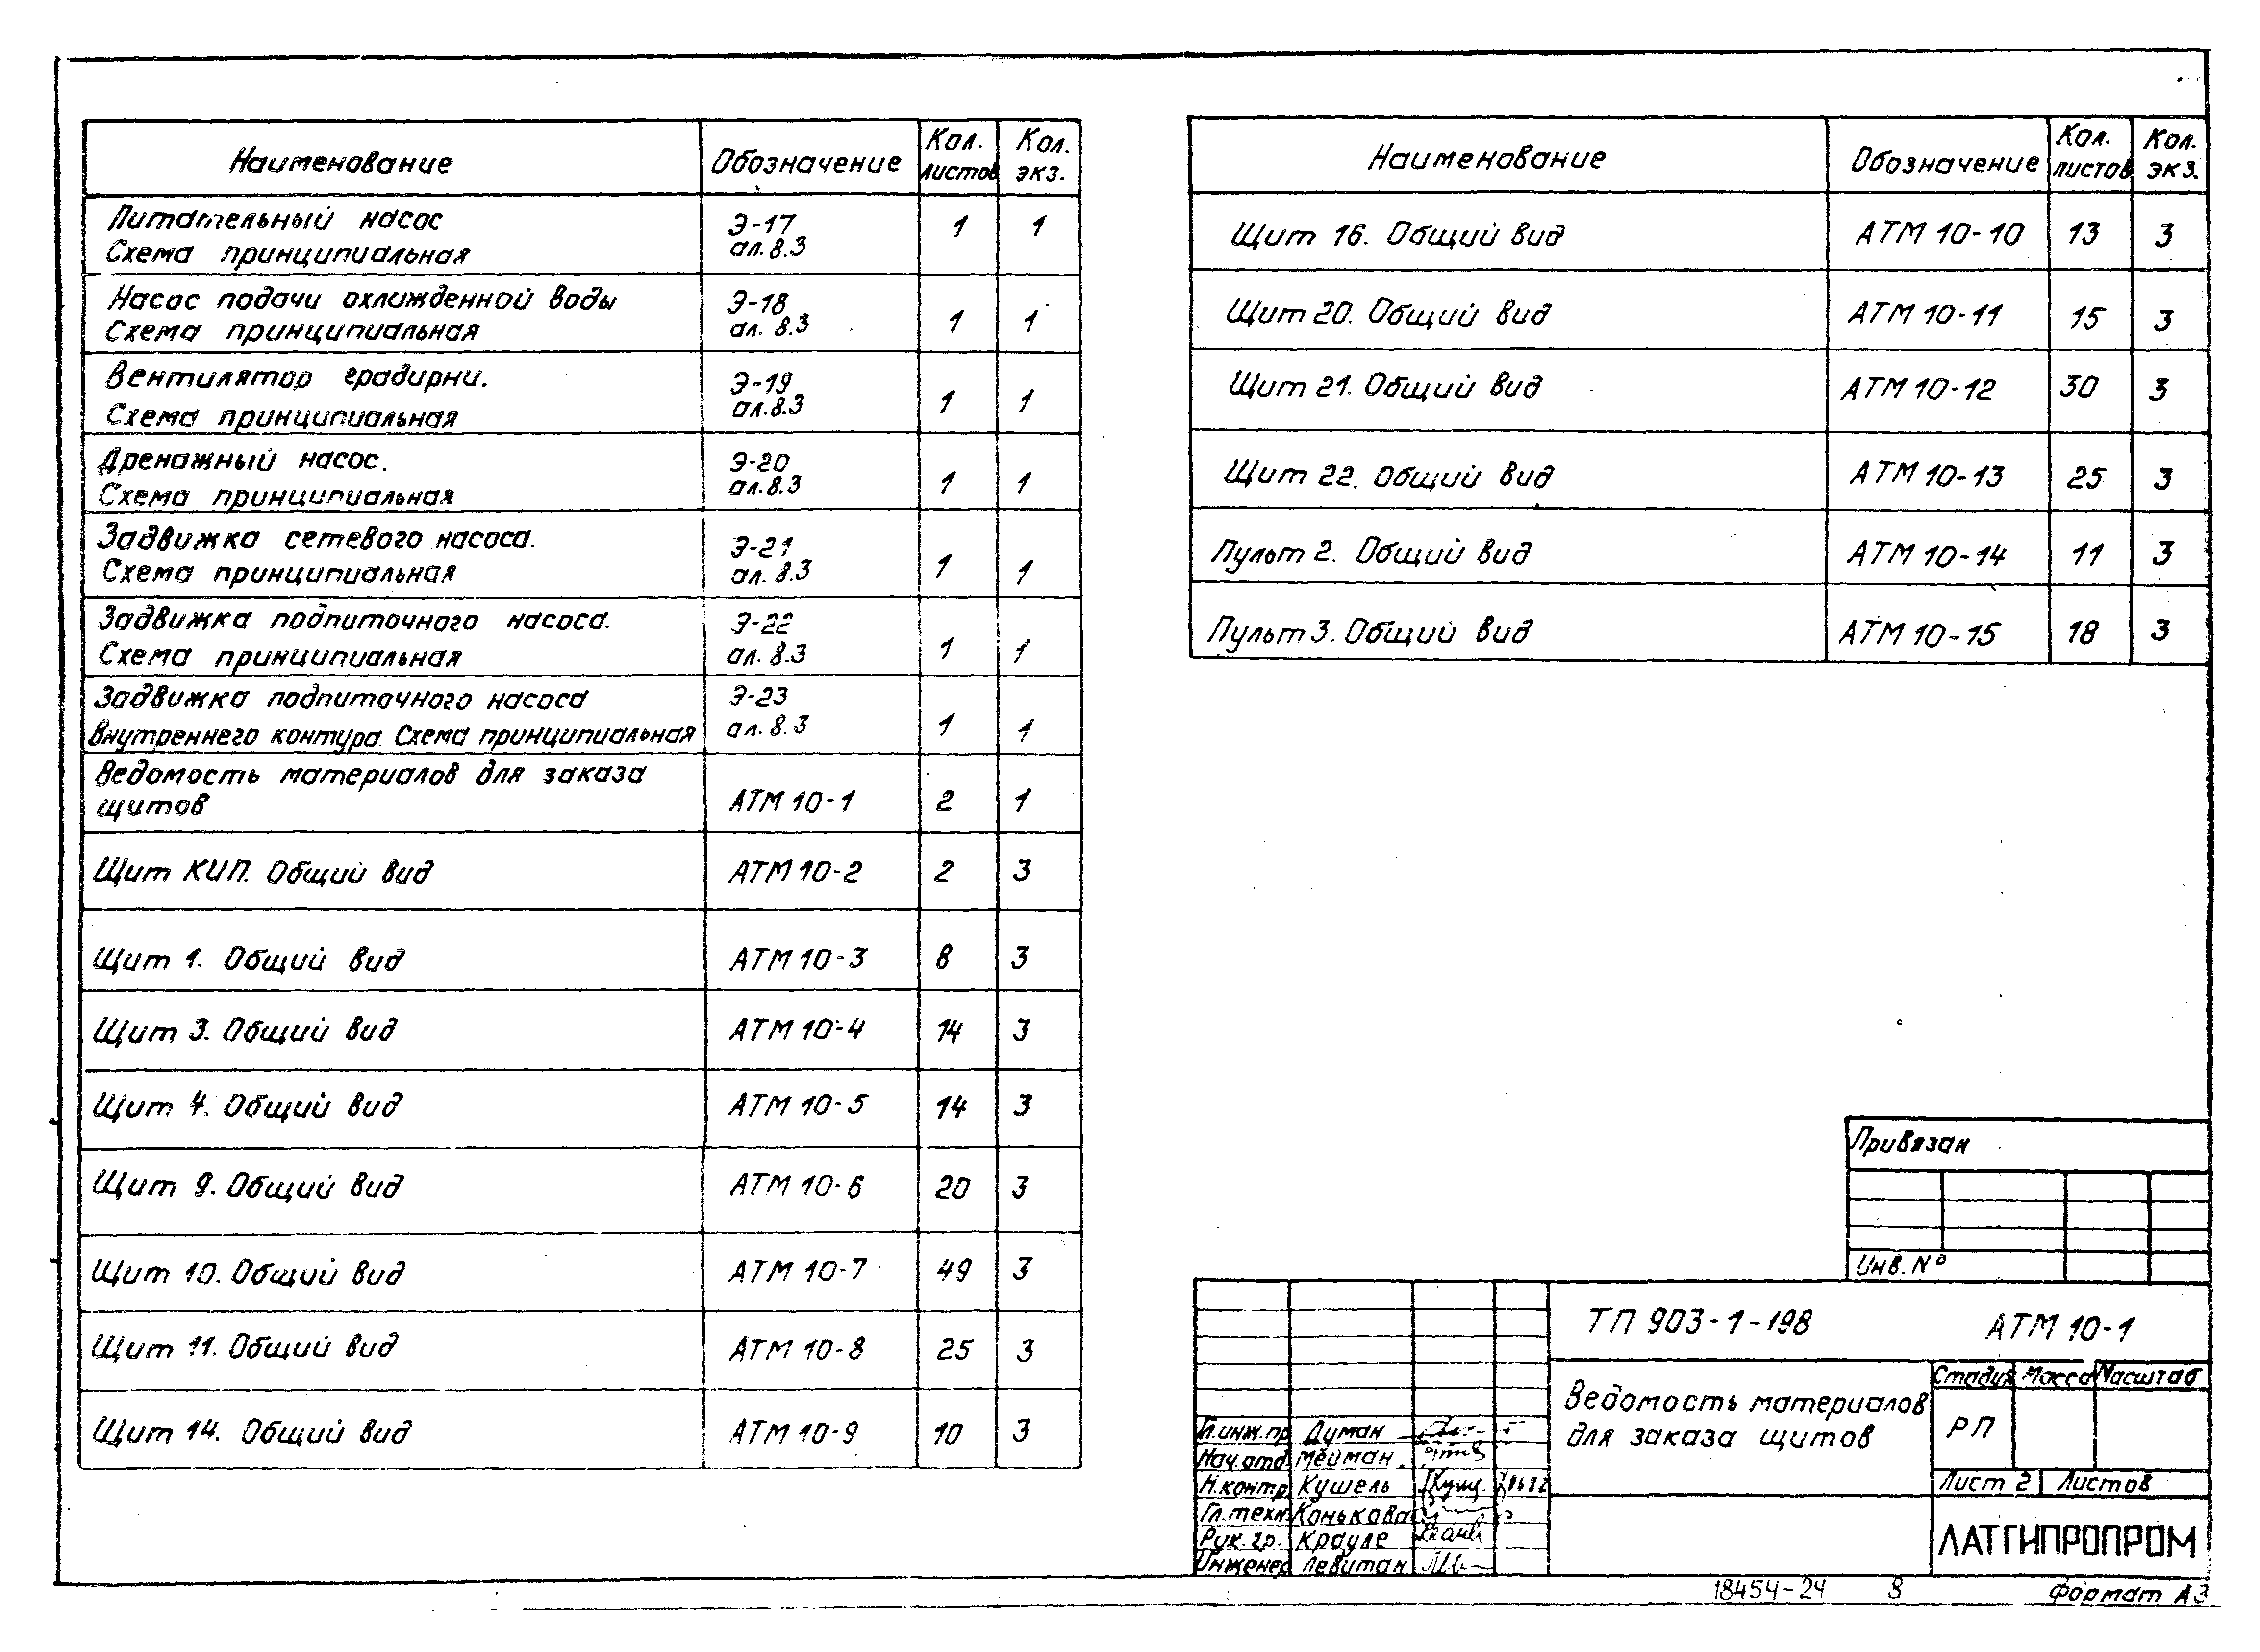 Наименование Обозначение Кол. листов Кол. экз.
Питательный насос
Схема принципиальная Э-17 ал.8.3 1 1
Насос подачи охлажденной воды
Схема принципиальная Э-18 ал. 8.3 1 1
Вентилятор градирни.
Схема принципиальная Э-19 ал.8.3 1 1
Дренажный насос.
Схема принципиальная Э-20 ал.8.3 1 1
Задвижка сетевого насоса.
Схема принципиальная Э-21 ал. 8.3 1 1
Задвижка подпиточного насоса.
Схема принципиальная Э-22 ал. 8.3 1 1
Задвижка подпиточного насоса
Внутреннего контура. Схема принципиальная Э-23 ал. 8.3 1 1
Ведомость материалов для заказа
щитов АТМ 10-1 2 1
Щит КИП. Общий вид АТМ 10-2 2 3
Щит 1. Общий вид АТМ 10-3 8 3
Щит 3. Общий вид АТМ 10-4 14 3
Щит 4. Общий вид АТМ 10-5 14 3
Щит 9. Общий вид АТМ 10-6 20 3
Щит 10. Общий вид АТМ 10-7 49 3
Щит 11. Общий вид АТМ 10-8 25 3
Щит 14. Общий вид АТМ 10-9 10 3
Наименование Обозначение Кол. листов Кол. экз.
Щит 16. Общий вид АТМ 10-10 13 3
Щит 20. Общий вид АТМ 10-11 15 3
Щит 21. Общий вид АТМ 10-12 30 3
Щит 22. Общий вид АТМ 10-13 25 3
Пульт 2. Общий вид АТМ 10-14 11 3
Пульт 3. Общий вид АТМ 10-15 18 3
Привязан
Инв. №
ТП 903-1-198 АТМ 10-1
Ведомость материалов
для заказа щитов
Стадия Масса Масштаб
РП
Лист 2 Листов
ЛАТГИПРОПРОМ
Гл.инж.пр Думан
Нач.отд Мейман
Н.контр Кушель
Гл.техн. Конькова
Рук. гр. Крауле
Инженер Левитан
18454-24 8 Формат А3